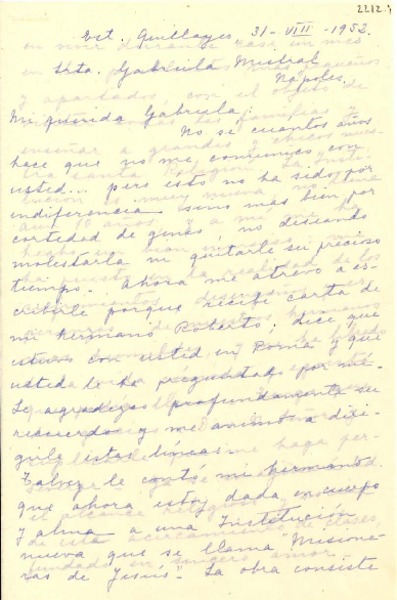 2212
Est. Quillayes, 31-VIII-1952.
Srta. Gabriela Mistral
Nápoles.
Mi querida Gabriela:
No se cuantos años
hace que no me comunico con
usted... pero esto no ha sido por
indiferencia sino más bien por
cortedad de genio, no deseando
molestarla ni quitarle su precioso
tiempo. Ahora me atrevo a es-
cribirle porque recibí carta de
mi hermano Roberto; dice que
estuvo con usted en Roma y que
usted le ha preguntado por mí.
Le agradezco profundamente su
recuerdo y me animo a diri-
girle estas líneas.
Talvez le contó mi hermano
que ahora estoy dada en cuerpo
y alma a una Institución
nueva que se llama "Misione-
ras de Jesús". La obra consiste